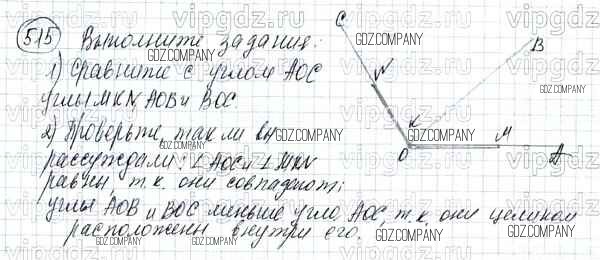 515 Выполните задания:
1) Сравните с углом АОС
углы MKN, АОВ и ВОС
2) Проверьте, так ли вы
рассуждали: ∠ АОС и ∠ MKN
равны, т.к. они совпадают;
углы АОВ и ВОС меньше угла АОС, т.к. они целиком
расположены внутри его.
C
N
B
K
O
M
A
vipgdz.ru
GDZ.COMPANY